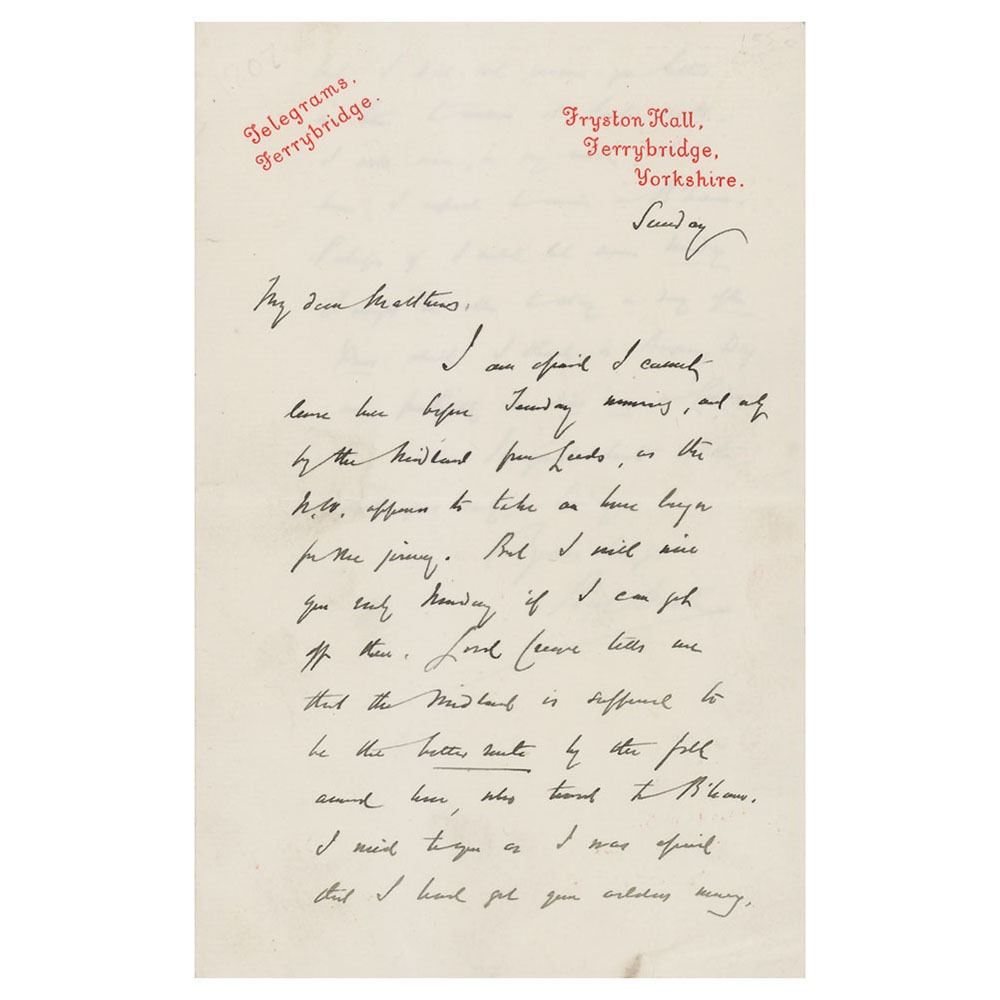 Telegrams.
Ferrybridge.
Fryston Hall,
Ferrybridge,
Yorkshire.
Sunday
My dear Matthews.
I am afraid I cannot
leave here before Tuesday morning, and only
by the Midland from Leeds, as the
N.W. appears to take an hour longer
for the journey. But I will wire
you early Monday if I can get
off then. Lord Crewe tells me
that the Midland is supposed to
be the better route by the folk
around here, who travel to B'ham.
I wired to you as I was afraid
that I had got your address wrong,